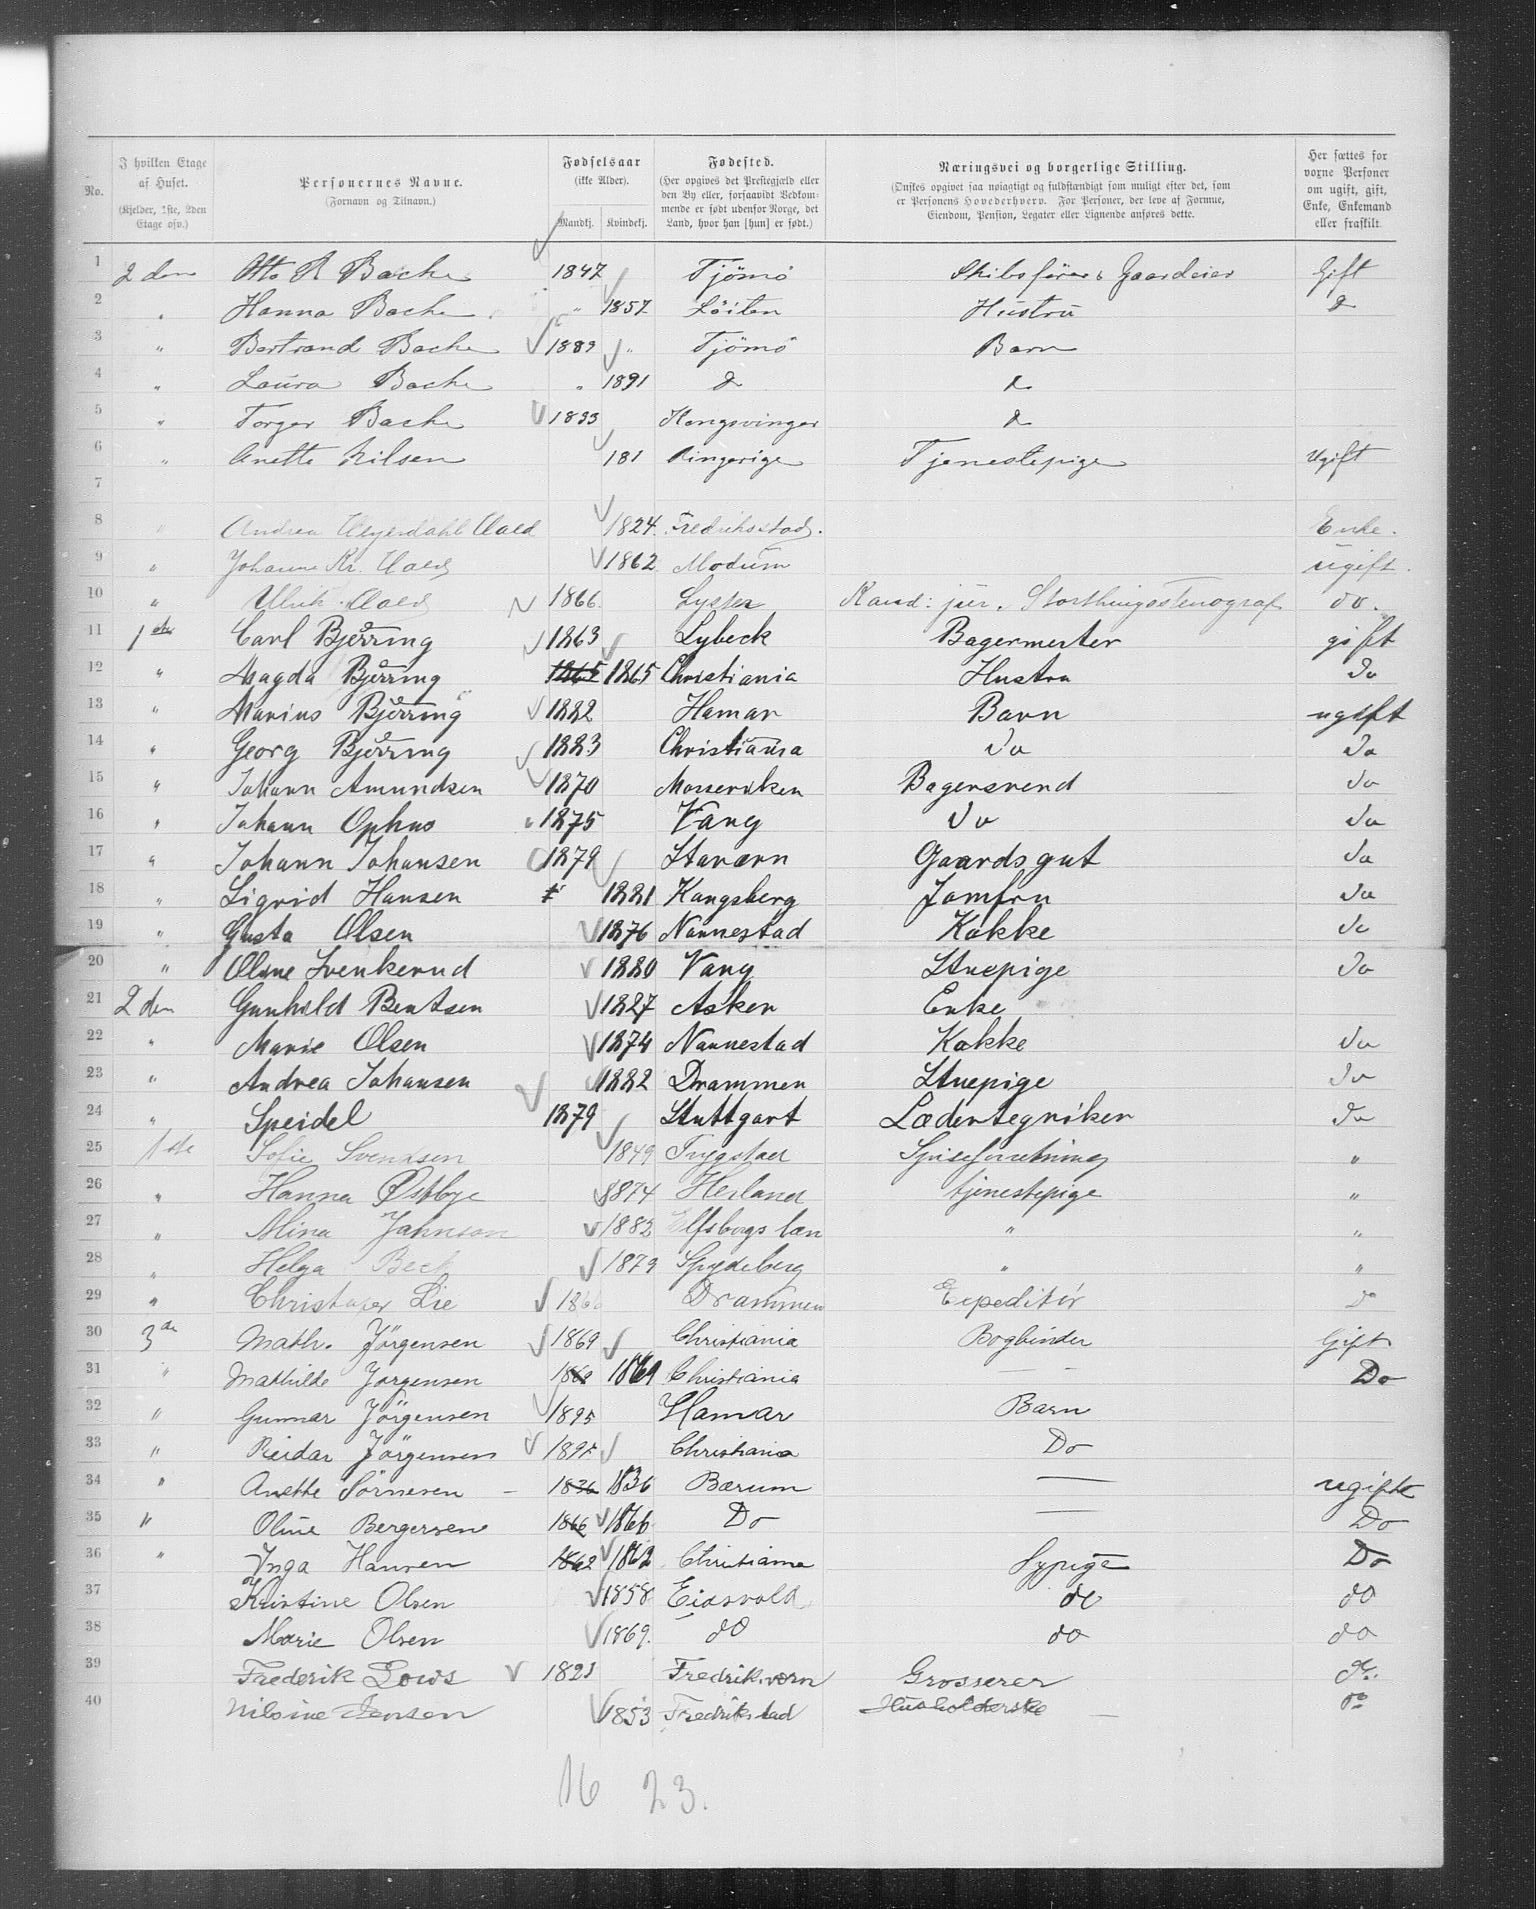 No. I hvilken Etage af Huset. (Kjelder, 1ste, 2den Etage osv.) Personernes Navne. (Fornavn og Tilnavn.) Fødselsaar (ikke Alder). Mandkj. Kvindekj. Fødested. (Her opgives det Prestegjæld eller den By eller, forsaavidt Vedkommende er født udenfor Norge, det Land, hvor han [hun] er født.) Næringsvei og borgerlige Stilling. (Ønskes opgivet saa nøiagtigt og fuldstændigt som muligt efter det, som er Personens Hovederhverv. For Personer, der leve af Formue, Eiendom, Pension, Legater eller Lignende anføres dette. Her sættes for voxne Personer om ugift, gift, Enke, Enkemand eller fraskilt.
1 2den Otto R Bache 1847 Tjömö Skibsförer & Gaardeier Gift
2 " Hanna Bache " 1857 Löiten Hustru d
3 " Bertrand Bache 1889 " Tjömö Barn
4 " Laura Bache " 1891 d d
5 " Torger Bache 1893 Kongsvinger d
6 " Anette Nilsen 181 Ringerige Tjenestepige Ugift
7
8 " Andrea Heyerdahl Aall 1824 Fredriksstad. Enke.
9 " Johanne Kr. Aall 1862 Modum ugift.
10 " Ulrik Aall 1866 Lyster Kand: jur. Storthingsstenograf do.
11 1ste Carl Bjerring 1863 Lybeck Bagermester gift
12 " Magda Bjerring 1865 1865 Christiania Hustru do
13 " Marius Bjerring 1882 Hamar Barn ugift
14 " Georg Bjerring 1883 Christiania do do
15 " Johann Amundsen 1870 Mosserviken Bagersvend do
16 " Johann Ophus 1875 Vang do do
17 " Johann Johansen 1879 Stavern Gaardsgut do
18 " Sigrid Hansen 1881 Kongsberg Jomfru do
19 " Gusta Olsen 1876 Nannestad Kokke do
20 " Oline Svenkerud 1880 Vang Stuepige do
21 2den Gunhild Bentsen 1827 Asker Enke
22 " Marie Olsen 1874 Nannestad Kokke do
23 " Andrea Johansen 1882 Drammen Stuepige do
24 " Speidel 1879 Stuttgart Lædertegniker do
25 1ste Sofie Svendsen 1849 Trygstad Spiseforretning "
26 " Hanna Østbye 1874 Herland tjenestepige "
27 " Alina Johnson 1882 Elfsborgs læn " "
28 " Helga Beck 1879 Spydeberg " "
29 " Christofer Lie 186 Drammen Expeditör do
30 3de Math. Jörgensen 1869 Christiania Bogbinder Gift
31 " Mathilde Jørgensen 1869 1869 Christiania — Do
32 " Gunnar Jörgensen 1895 Hamar Barn
33 " Reidar Jörgensen 189 Christiania Do
34 " Anette Sörnesen 1836 1836 Bærum — ugifte
35 " Oline Bergersen 1866 1866 Do — Do
36 " Inga Hansen 1862 1862 Christiania Sypige Do
37 Kristine Olsen 1858 Eidsvold do do
38 Marie Olsen 1869. do do do
39 Frederik Lows 1821 Fredriksværn Grosserer do.
40 Nilsine Jensen 1853 Fredrikstad Husholderske do
16 23.